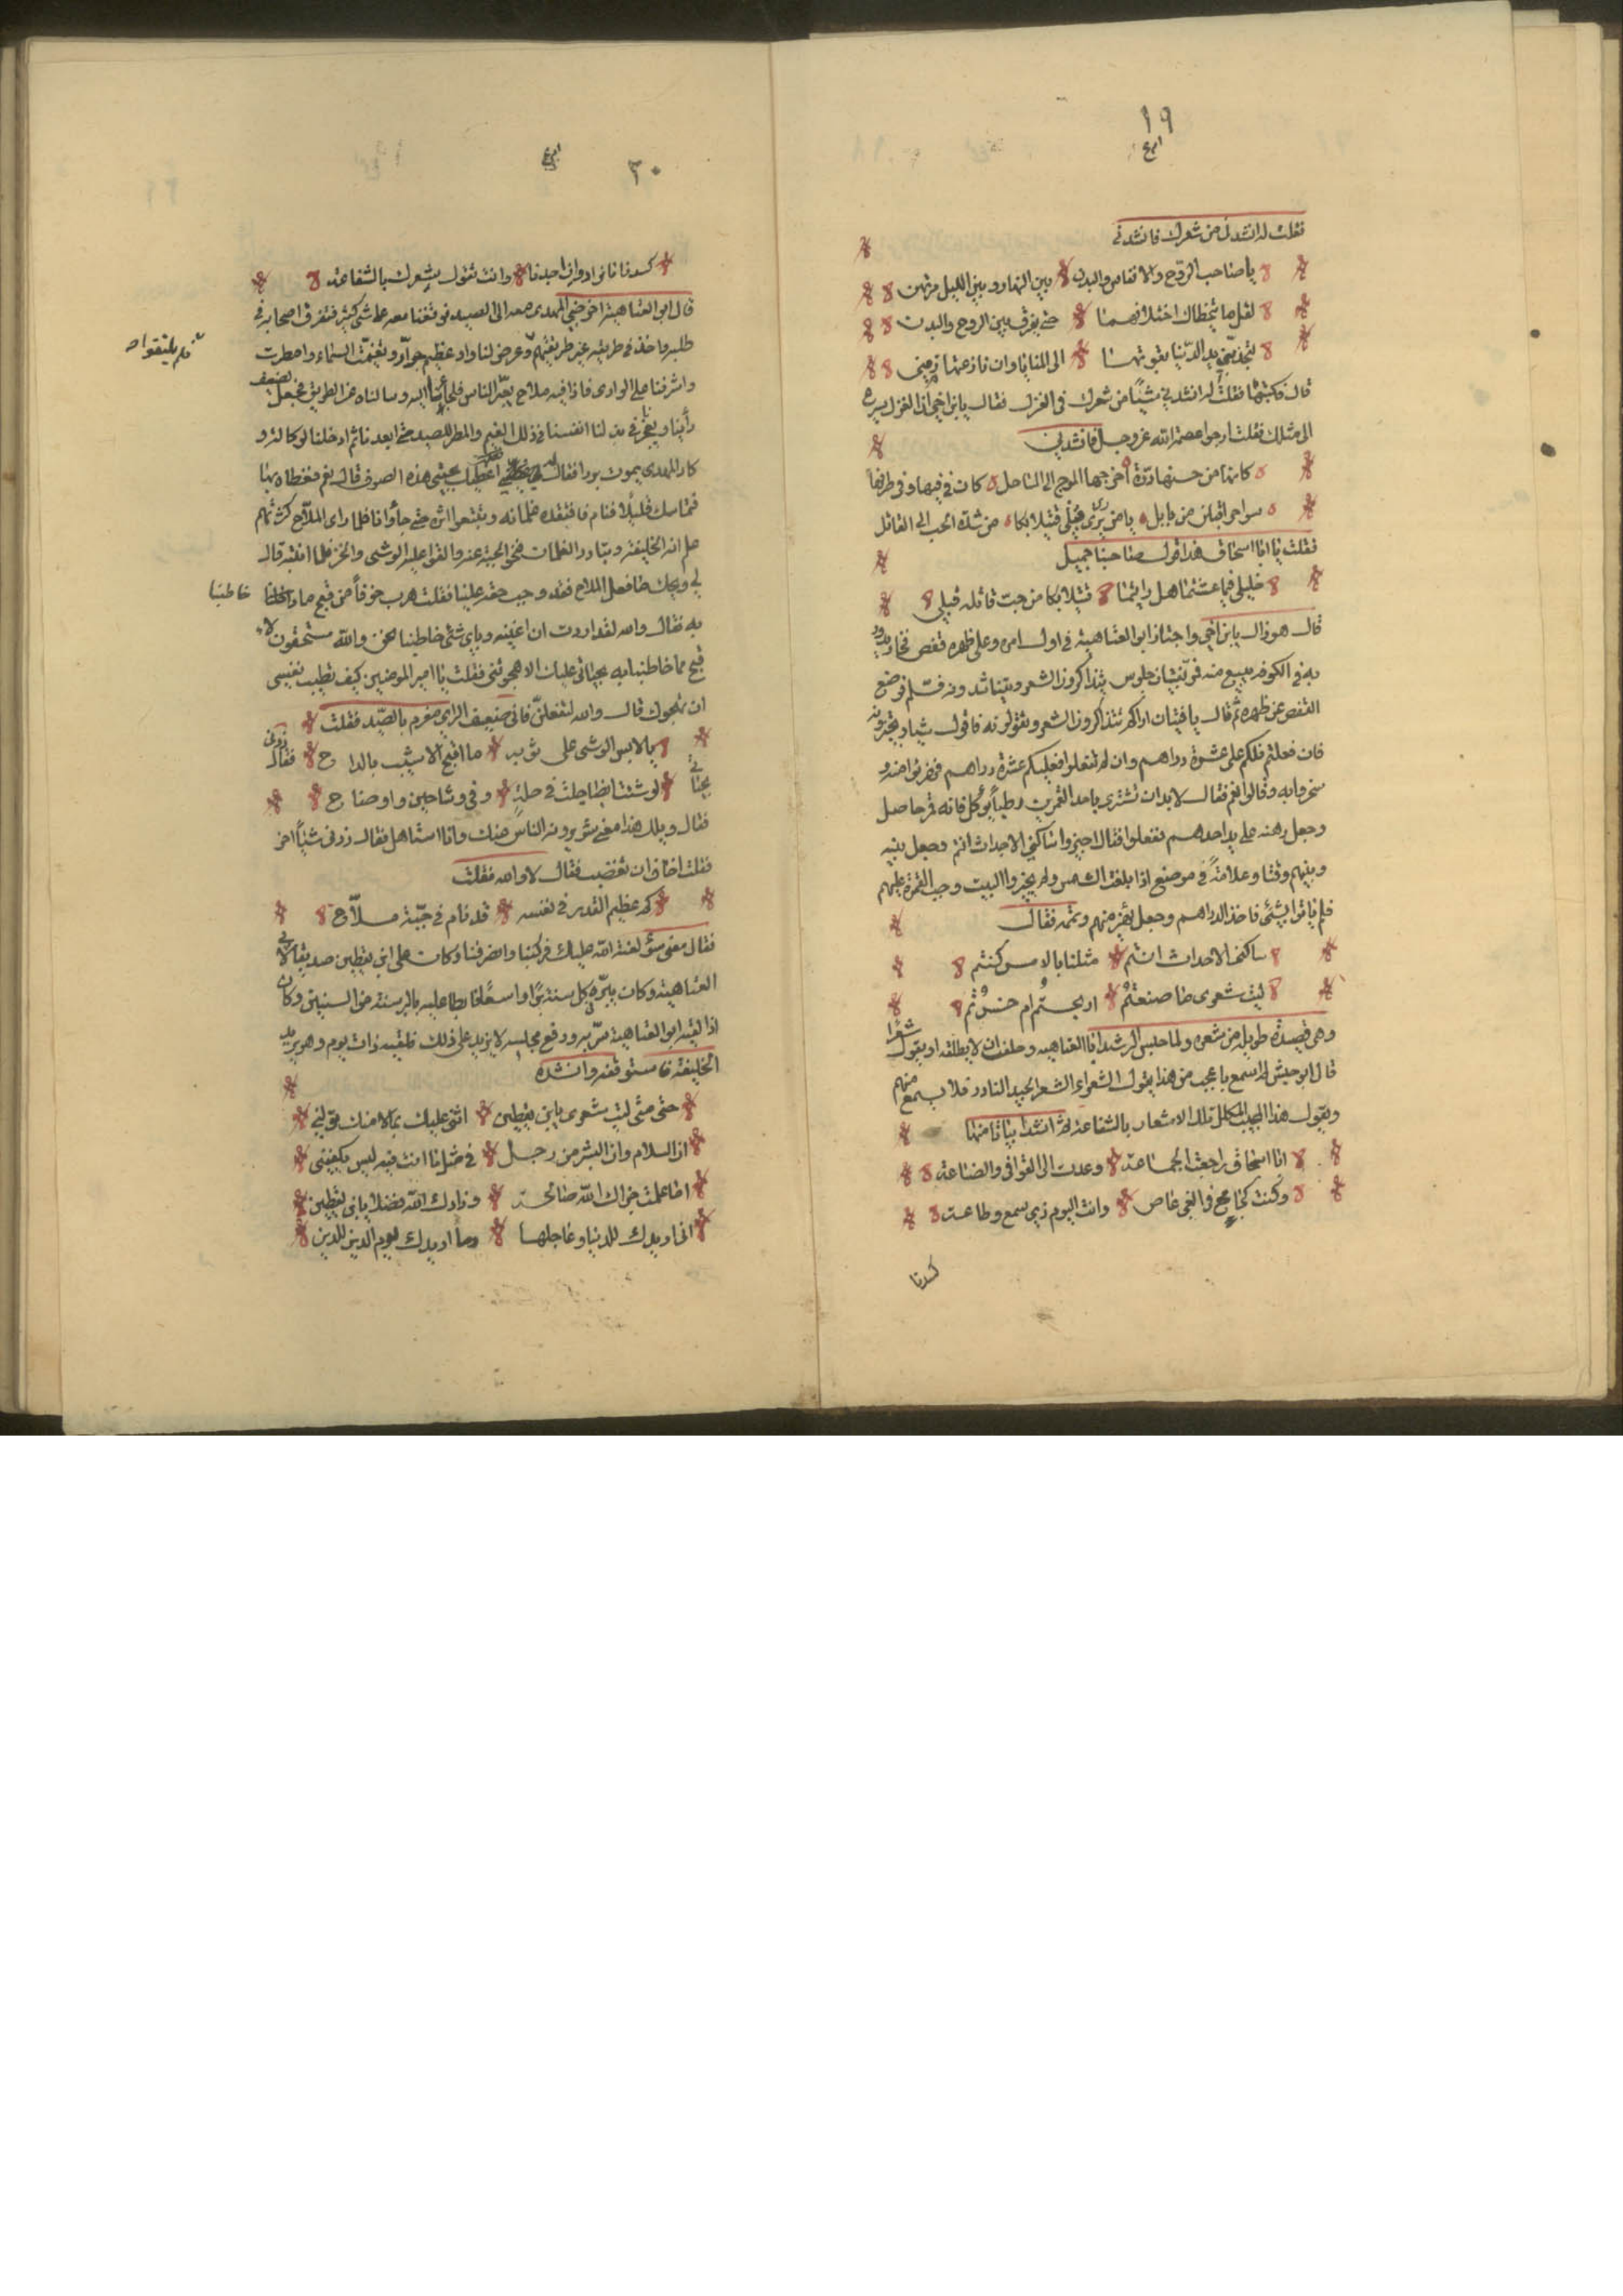 ١٩
فقلت له انشدنى من شعرك فانشدنى
يا صاحب الروح والانفاس والبدن بين النهار وبين الليل مرتهن
لقل ما يتخطاك اختلافهما حتى يفرق بين الروح والبدن
لتجذبنى يد الدنيا بقوتها الى المنايا وان نازعتها رسنى
قال فكتبتها فقلت له انشدنى شيئا من شعرك فى الغزل فقال يابن اخى ان الغزل يسرع
الى مثلك فقلت ارجو عصمة الله عز وجل فانشدنى
كانها من حسنها درة اخرجها الموج الى الساحل كان فى فيها وفى طرفها
سواحرا اقبلن من بابل يا من يرى قبلى قتيلا بكا من شدة الحب الى القاتل
فقلت يا ابا اسحاق هذا قول صاحبنا جميل
خليلى فيما عشتما هل رايتما قتيلا بكا من حب قاتله قبلى
قال هو ذاك يابن اخى واجتاز ابو العتاهية فى اول امره وعلى ظهره قفص فخار يدور
به فى الكوفة يبيع منه فمر بفتيان جلوس يتذاكرون الشعر ويتناشدونه فسلم فوضع
القفص عن ظهره ثم قال يا فتيان اراكم تتذاكرون الشعر وتقولونه فاقول شيا وتجيزونه
فان فعلتم فلكم على عشرة دراهم وان لم تفعلوا فعليكم عشرة دراهم فهزيوا منه و
سخروا به وقالوا نعم فقال لا بد ان نشترى باحد القمرين رطبا يؤكل فانه قمر حاصل
وجعل رهنه على يد احدهم ففعلوا فقال اجيزوا ساكنى الاجداث انتم وجعل بينه
وبينهم وقتا وعلامة فى موضع اذا بلغته الشمس ولم يجيزوا البيت وجب القمر عليهم
فلم ياتوا بشئ فاخذ الدراهم وجعل يهزء منهم وتممه فقال
ساكنى الاجداث انتم مثلنا بالامس كنتم
ليت شعرى ما صنعتم اربحتم ام خسرتم
وهى قصيدة طويلة من شعره ولما حبس الرشيد ابا العتاهيه وحلف ان لا يطلقه او يقول شعرا
قال ابو حبيش له اسمع باعجب من هذا يقول الشعراء الشعر الجيد النادر فلا يسمع منهم
ويقول هذا المكلل تلك الاشعار بالشفاعة ثم انشد ابياتا منها
ابا اسحاق راجعت الجماعة وعدت الى القوافى والصناعة
وكنت كجامح فى الغى عاص وانت اليوم ذى سمع وطاعة
كسدنا
٣٠
كسدنا ما نراد وان اجدنا وانت تقول شعرك بالشفاعة
قال ابو العتاهية اخرجنى المهدى معه الى الصيد فوقعنا معه على شئ كثير فتفرق اصحابه فى
طلبه واخذ فى طريقه غير طريقهم وعرض لنا واد عظيم جرار وتغيمت السماء وامطرت
فلم يلتقوا
واشرفنا على الوادى فاذا فيه ملاح يعبر الناس فلجأنا اليه وسالناه عن الطريق فجعل يضعف
رأينا ويعجزنا فى بذلنا انفسنا فى ذلك الغيم والمطر للصيد حتى ابعدنا ثم ادخلنا كوخا له و
كاد المهدى يموت بردا فقال له اغطيك بجبتى هذه الصوف قال نعم فغطاه بها
فتماسك قليلا فنام فافتقده غلمانه وتتبعوا اثره حتى جاوا فلما راى الملاح كثرتهم
علم انه الخليفة وتبادر الغلمان فنحوا الجبة عنه والقوا عليه الوشى والخز فلما انتبه قال
لى ويحك ما فعل الملاح فقد وجب حقه علينا فقلت هرب خوفا من قبح ما خاطبنا
خاطبنا
به فقال والله لقد اردت ان اغنيه وباى شئ خاطبنا نحن والله مستحقون لا
قبح مما خاطبنا به بحياتى عليك الا هجوتنى فقلت يا امير المومنين كيف تطيب نفسى
ان اهجوك قال والله لتفعلن فانى ضعيف الراى مغرم بالصيد فقلت
يا لابس الوشى على ثوبه ما اقبح الاشيب بالراح فقال زدنى
بحياتى لو شئت ايضا جلت فى حلة وفى وشاحين واوضاح
فقال ويلك هذا معنى سوء يرويه الناس عنك وانا استاهل فقال زدنى شيئا اخر
فقلت اخاف ان تغضب فقال لا والله فقلت
كم عظيم القدر فى نفسه قد نام فى جبة ملاح
فقال معنى سوء لعنة الله عليك فركبنا وانصرفنا وكان على ابن يقطين صديقا لابى
العتاهية وكان يبره كل سنة برا واسعا فابطا عليه بالبر سنة من السنين وكان
اذا لقيه ابو العتاهية سر به ورفع مجلسه لا يزيد على ذلك فلقيه ذات يوم وهو يريد
الخليفة فاستوقفه وانشده
حتى متى ليت شعرى يابن يقطين اثنى عليك بما لا منك تولينى
ان السلام وان البشر من رجل فى مثل ما انت فيه ليس يكفينى
اما علمت جزاك الله صالحة وزادك الله فضلا يابن يقطين
انى اريدك للدنيا وعاجلها وما اريدك ليوم الدين للدين